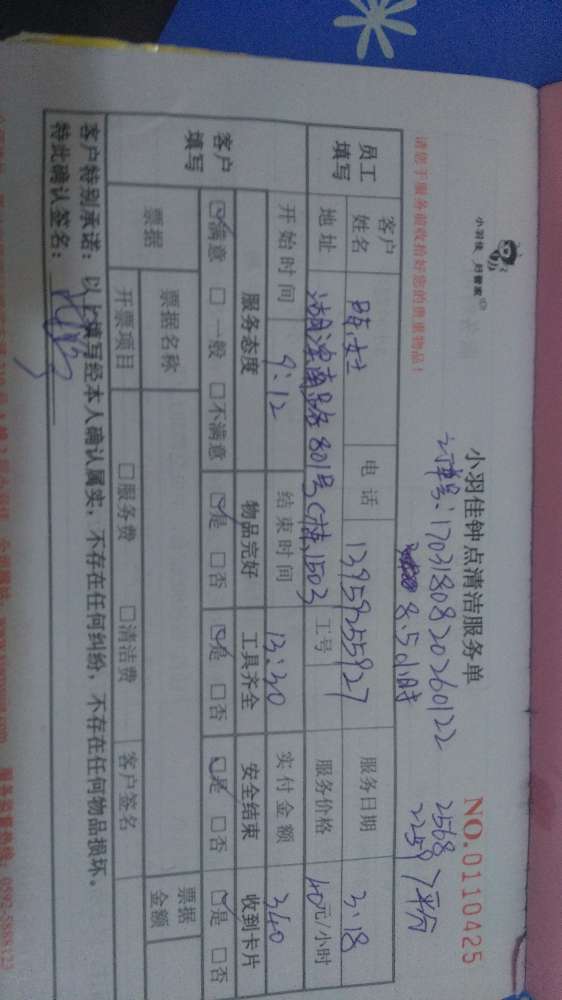 小羽佳 好管家
小羽佳钟点清洁服务单 NO.0110425
订单号：1703180820260122 2568
8.5小时 2259 平台
请您于服务前收拾好您的贵重物品！
员工填写 客户姓名 陈女士 电话 13959255927 服务日期 3.18
地址 湖滨南路801号C栋1503 工号 服务价格 40元/小时
开始时间 9:12 结束时间 13:30 实付金额 340
客户填写 服务态度 物品完好 工具齐全 安全结束 收到卡片
☑满意 □一般 □不满意 ☑是 □否 ☑是 □否 ☑是 □否 ☑是 □否
票据 票据名称 票据金额
开票项目 □服务费 □清洁费 客户签名
客户特别承诺：以上填写经本人确认属实，不存在任何纠纷，不存在任何物品损坏。
特此确认签名：